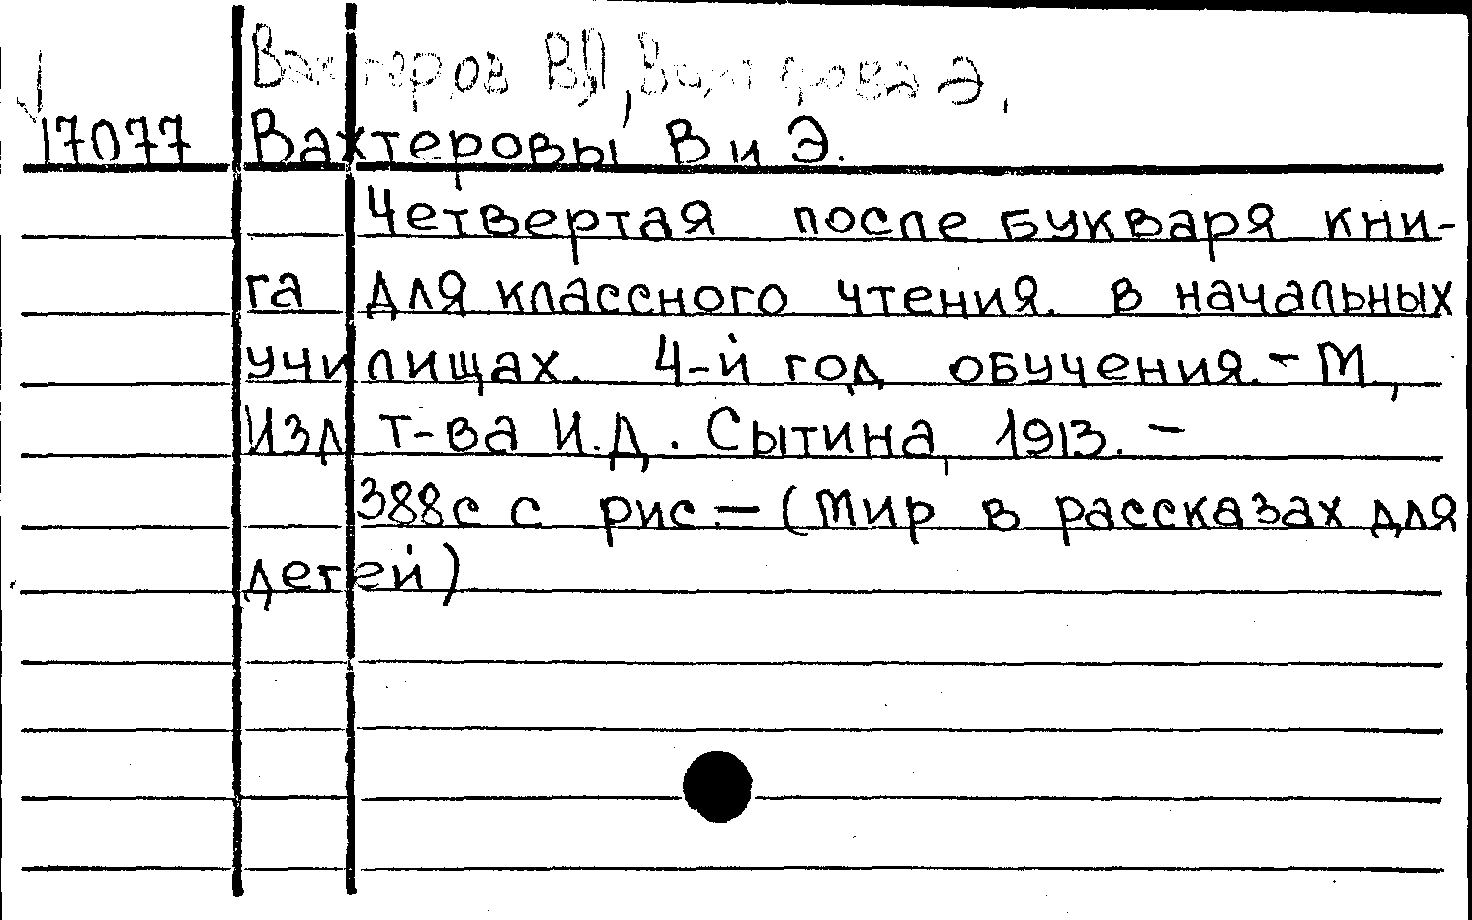 Вахтеров В.П., Вахтерова Э.
17077 Вахтеровы В и Э.
Четвертая после букваря кни-
га для классного чтения. в начальных
училищах. 4-й год обучения. - М.,
Изд т-ва И.Д. Сытина, 1913. -
388с с рис. - (Мир в рассказах для
детей)